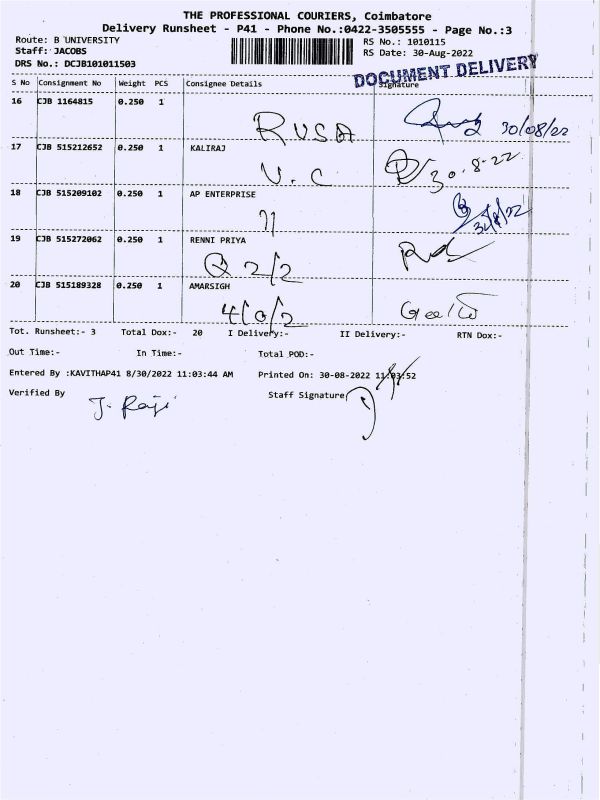 THE PROFESSIONAL COURIERS, Coimbatore
Delivery Runsheet - P41 - Phone No.:0422-3505555 - Page No.:3
Route: B UNIVERSITY
RS No.: 1010115
Staff: JACOBS
RS Date: 30-Aug-2022
DRS No.: DCJB101011503
DOCUMENT DELIVERY
S No Consignment No Weight PCS Consignee Details Signature
16 CJB 1164815 0.250 1
RUSA 30/08/22
17 CJB 515212652 0.250 1 KALIRAJ
V.C 30.8.22
18 CJB 515209102 0.250 1 AP ENTERPRISE
19 CJB 515272062 0.250 1 RENNI PRIYA
Q 2/2
20 CJB 515189328 0.250 1 AMARSIGH
4/0/2
Tot. Runsheet:- 3 Total Dox:- 20 I Delivery:- II Delivery:- RTN Dox:-
Out Time:- In Time:- Total POD:-
Entered By :KAVITHAP41 8/30/2022 11:03:44 AM Printed On: 30-08-2022 11:03:52
Verified By J. Raji Staff Signature